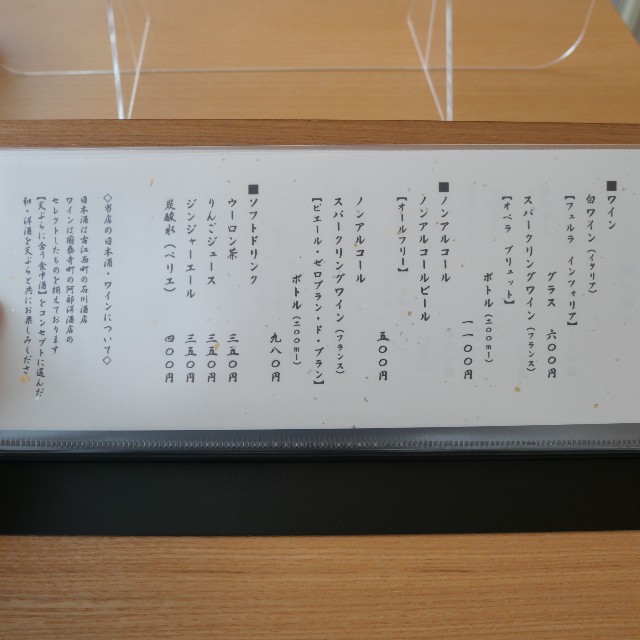 ■ワイン
白ワイン（イタリア）
【フェルラ インツォリア】
グラス 六〇〇円
スパークリングワイン（フランス）
【オペラ ブリュット】
ボトル（二〇〇ml）
一一〇〇円
■ノンアルコール
ノンアルコールビール
【オールフリー】
五〇〇円
ノンアルコール
スパークリングワイン（フランス）
【ピエール・ゼロブラン・ド・ブラン】
ボトル（二〇〇ml）
九八〇円
■ソフトドリンク
ウーロン茶 三五〇円
りんごジュース 三五〇円
ジンジャーエール 三五〇円
炭酸水（ペリエ） 四〇〇円
◇当店の日本酒・ワインについて◇
日本酒は古江西町の石川酒店
ワインは国泰寺町の阿部洋酒店の
セレクトしたものを揃えております
【天ぷらに合う食中酒】をコンセプトに選んだ
和・洋酒を天ぷらと共にお楽しみくださ